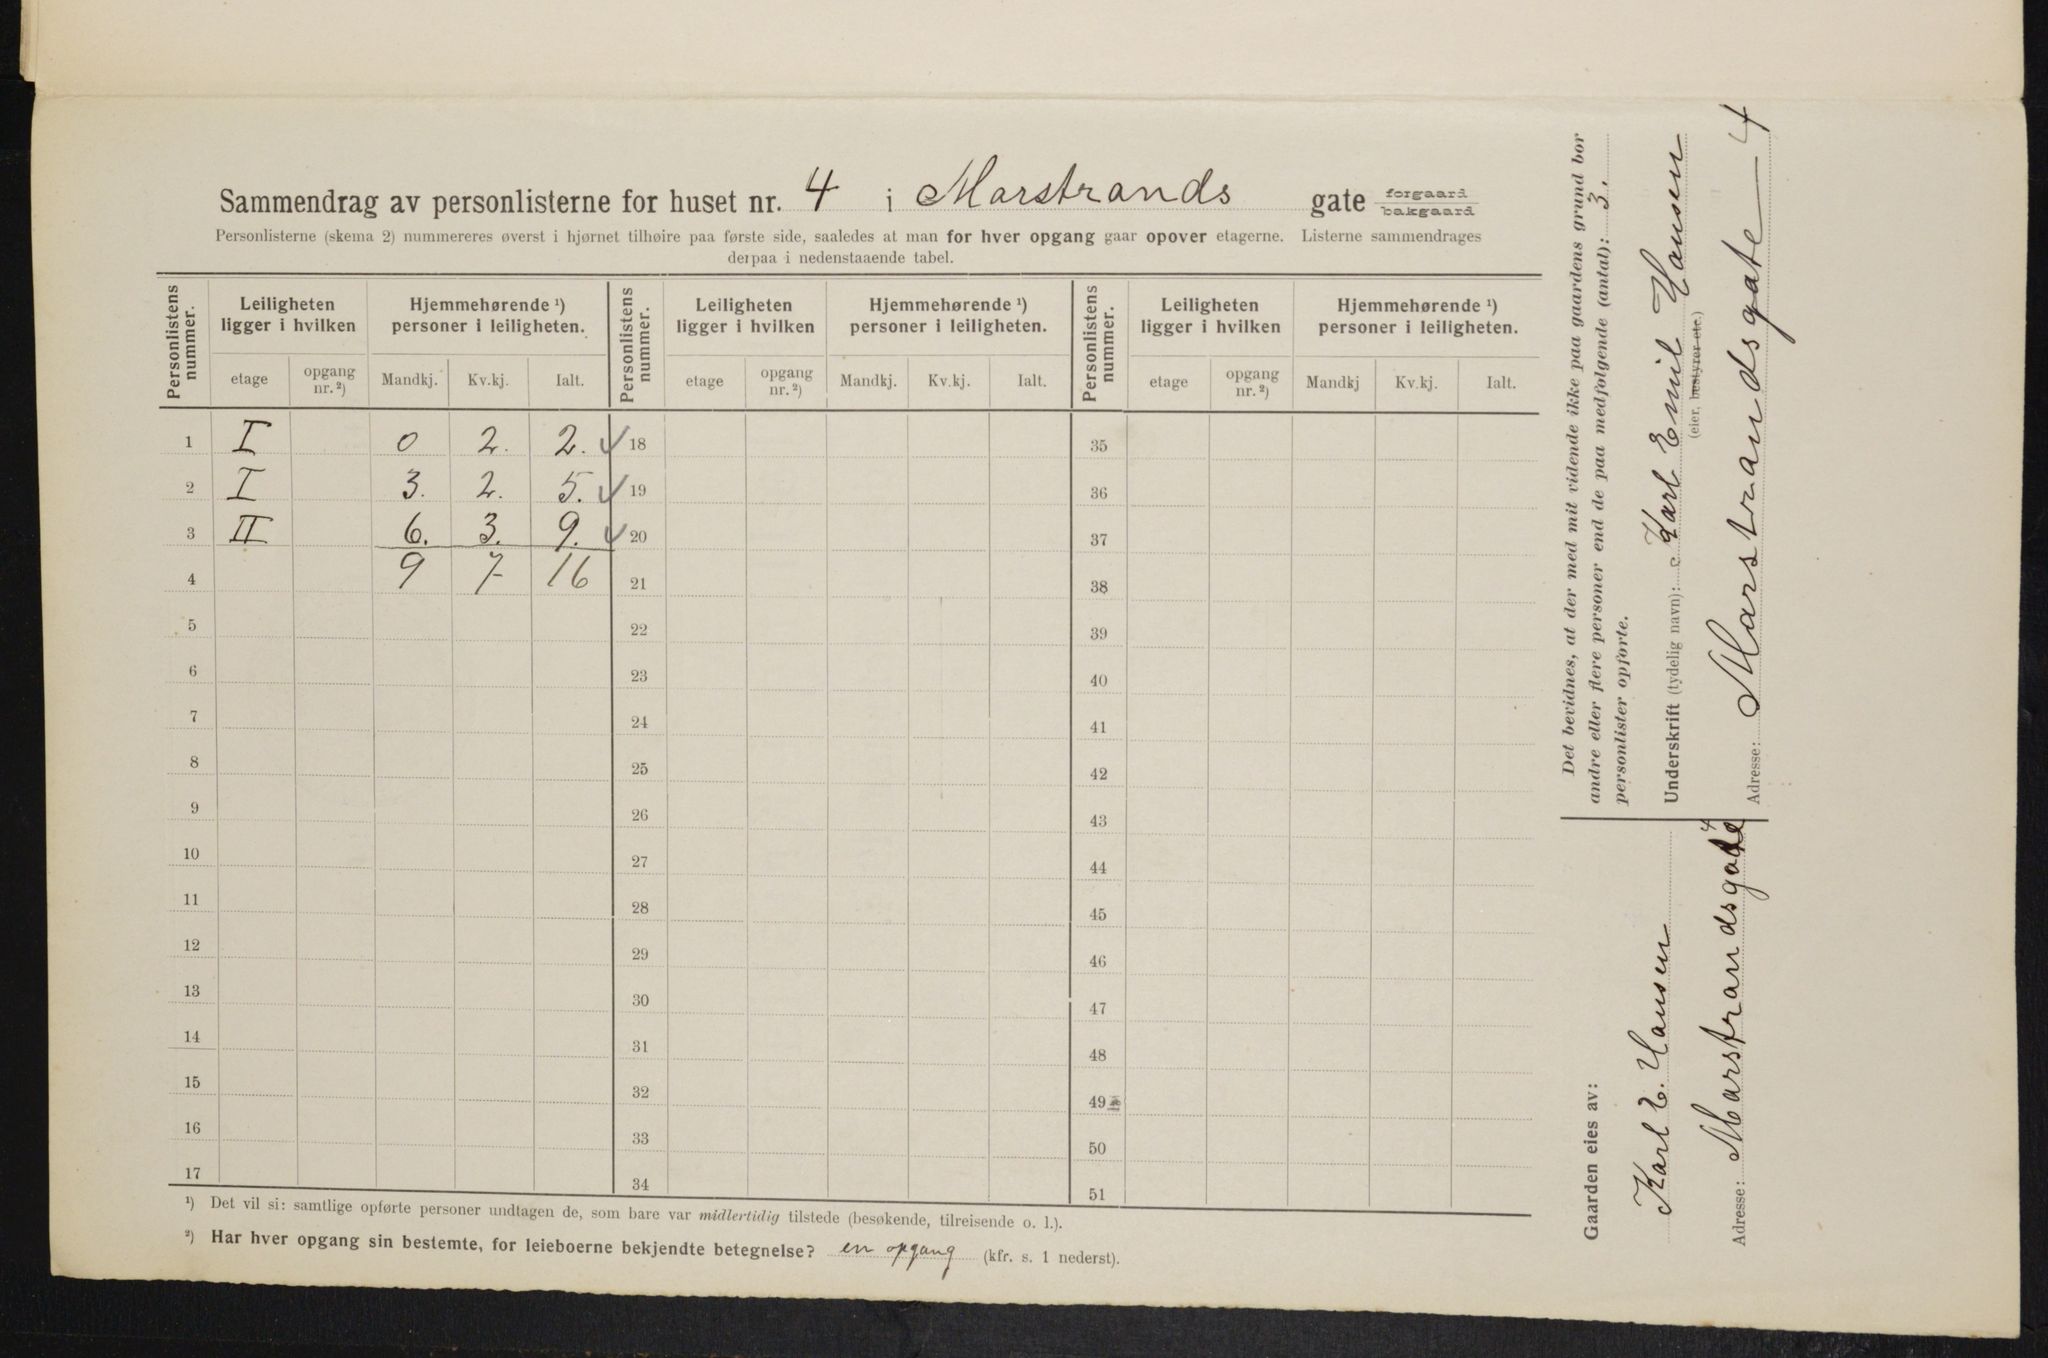 Sammendrag av personlisterne for huset nr. 4 i Marstrands gate forgaard bakgaard
Personlisterne (skema 2) nummereres øverst i hjørnet tilhøire paa første side, saaledes at man for hver opgang gaar opover etagerne. Listerne sammendrages
derpaa i nedenstaaende tabel.
Personlistens nummer. Leiligheten ligger i hvilken Hjemmehørende ¹) personer i leiligheten. Personlistens nummer. Leiligheten ligger i hvilken Hjemmehørende ¹) personer i leiligheten. Personlistens nummer. Leiligheten ligger i hvilken Hjemmehørende ¹) personer i leiligheten.
etage opgang nr. ²) Mandkj. Kv.kj. Ialt. etage opgang nr. ²) Mandkj. Kv.kj. Ialt. etage opgang nr. ²) Mandkj Kv.kj. Ialt.
1 I 0 2. 2. ✓ 18 35
2 I 3. 2. 5. ✓ 19 36
3 II 6. 3. 9. ✓ 20 37
4 9 7 16 21 38
5 22 39
6 23 40
7 24 41
8 25 42
9 26 43
10 27 44
11 28 45
12 29 46
13 30 47
14 31 48
15 32 49
16 33 50
17 34 51
¹) Det vil si: samtlige opførte personer undtagen de, som bare var midlertidig tilstede (besøkende, tilreisende o. l.).
²) Har hver opgang sin bestemte, for leieboerne bekjendte betegnelse? en opgang (kfr. s. 1 nederst).
Det bevidnes, at der med mit vidende ikke paa gaardens grund bor
andre eller flere personer end de paa medfølgende (antal): 3.
personlister opførte.
Underskrift (tydelig navn): Karl Emil Hansen
(eier, bestyrer etc.)
Adresse: Marstrandsgate 4
Gaarden eies av:
Karl E. Hansen
Adresse: Marstrandsgate 4